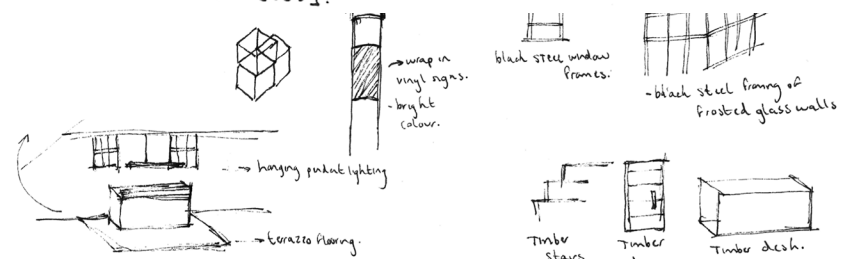 → wrap in
vinyl signs.
- bright
colour.
black steel window
frames.
- black steel framing of
frosted glass walls
→ hanging pendent lighting
→ terrazzo flooring.
Timber
Stairs
Timber
Timber desk.